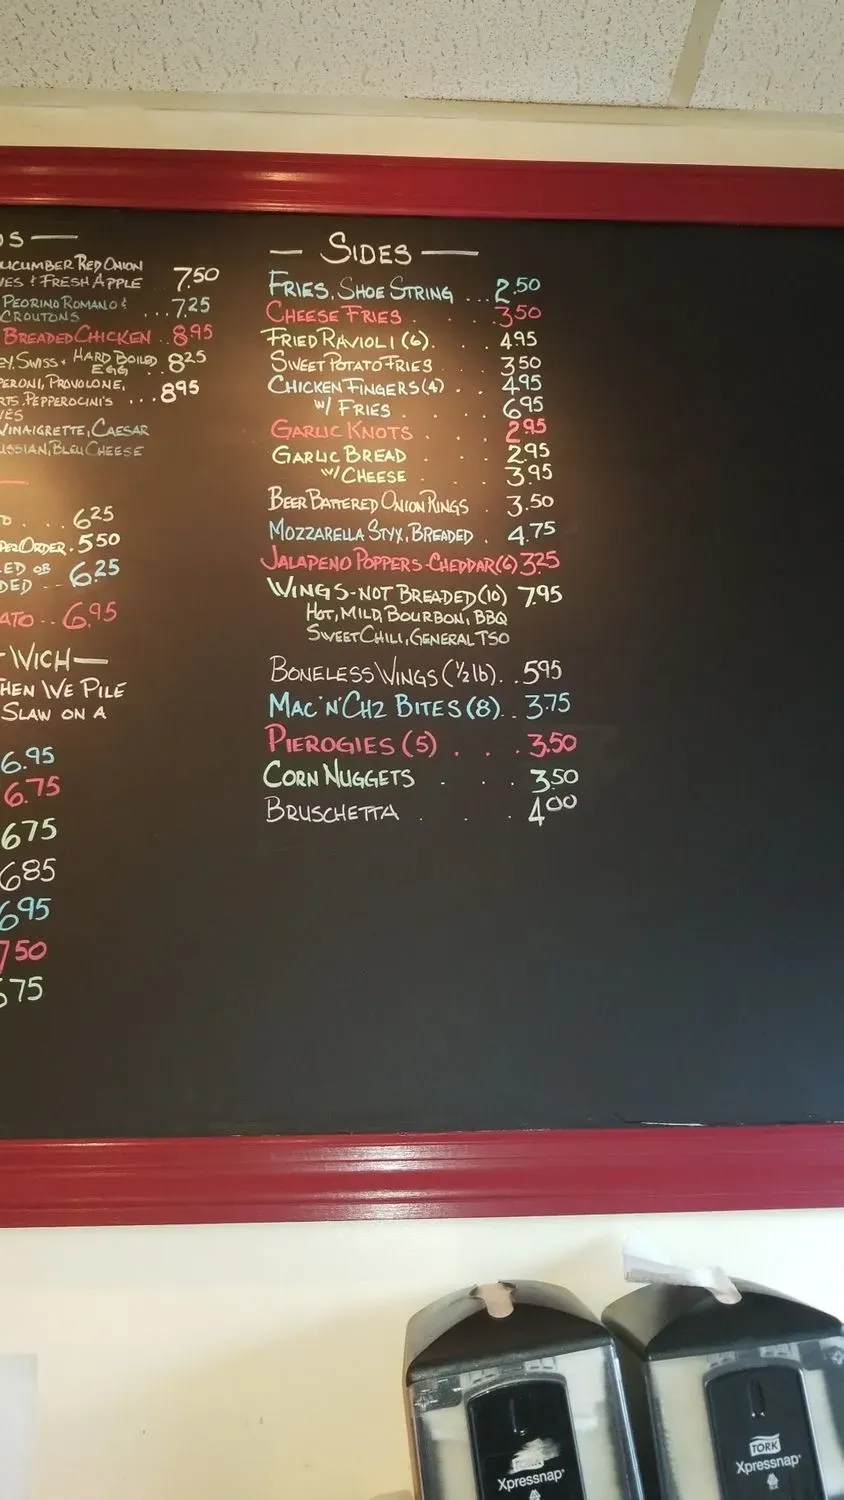 RED ONION
& FRESH APPLE 7.50
PEORINO ROMANO &
CROUTONS ... 7.25
BREADED CHICKEN .. 8.95
SWISS + HARD BOILED
EGG . 8.25
PROVOLONE,
PEPPEROCINI'S ... 8.95
VINAIGRETTE, CAESAR
BLEU CHEESE
.... 6.25
PER ORDER . 5.50
OR
-- 6.25
.. 6.95
WICH —
WE PILE
SLAW ON A
6.95
6.75
6.75
6.85
6.95
7.50
— SIDES —
FRIES, SHOE STRING ... 2.50
CHEESE FRIES . . 3.50
FRIED RAVIOLI (6) . . . 4.95
SWEET POTATO FRIES . . 3.50
CHICKEN FINGERS (4) . . 4.95
W/ FRIES . . . 6.95
GARLIC KNOTS . . . 2.95
GARLIC BREAD . . . 2.95
W/ CHEESE . . . 3.95
BEER BATTERED ONION RINGS . 3.50
MOZZARELLA STYX, BREADED . 4.75
JALAPENO POPPERS-CHEDDAR (6) 3.25
WINGS-NOT BREADED (10) 7.95
HOT, MILD, BOURBON, BBQ
SWEET CHILI, GENERAL TSO
BONELESS WINGS (1/2 lb) . .. 5.95
MAC 'N' CHZ BITES (8) .. 3.75
PIEROGIES (5) . . . 3.50
CORN NUGGETS . . . 3.50
BRUSCHETTA . . . 4.00
Xpressnap®
TORK
Xpressnap®